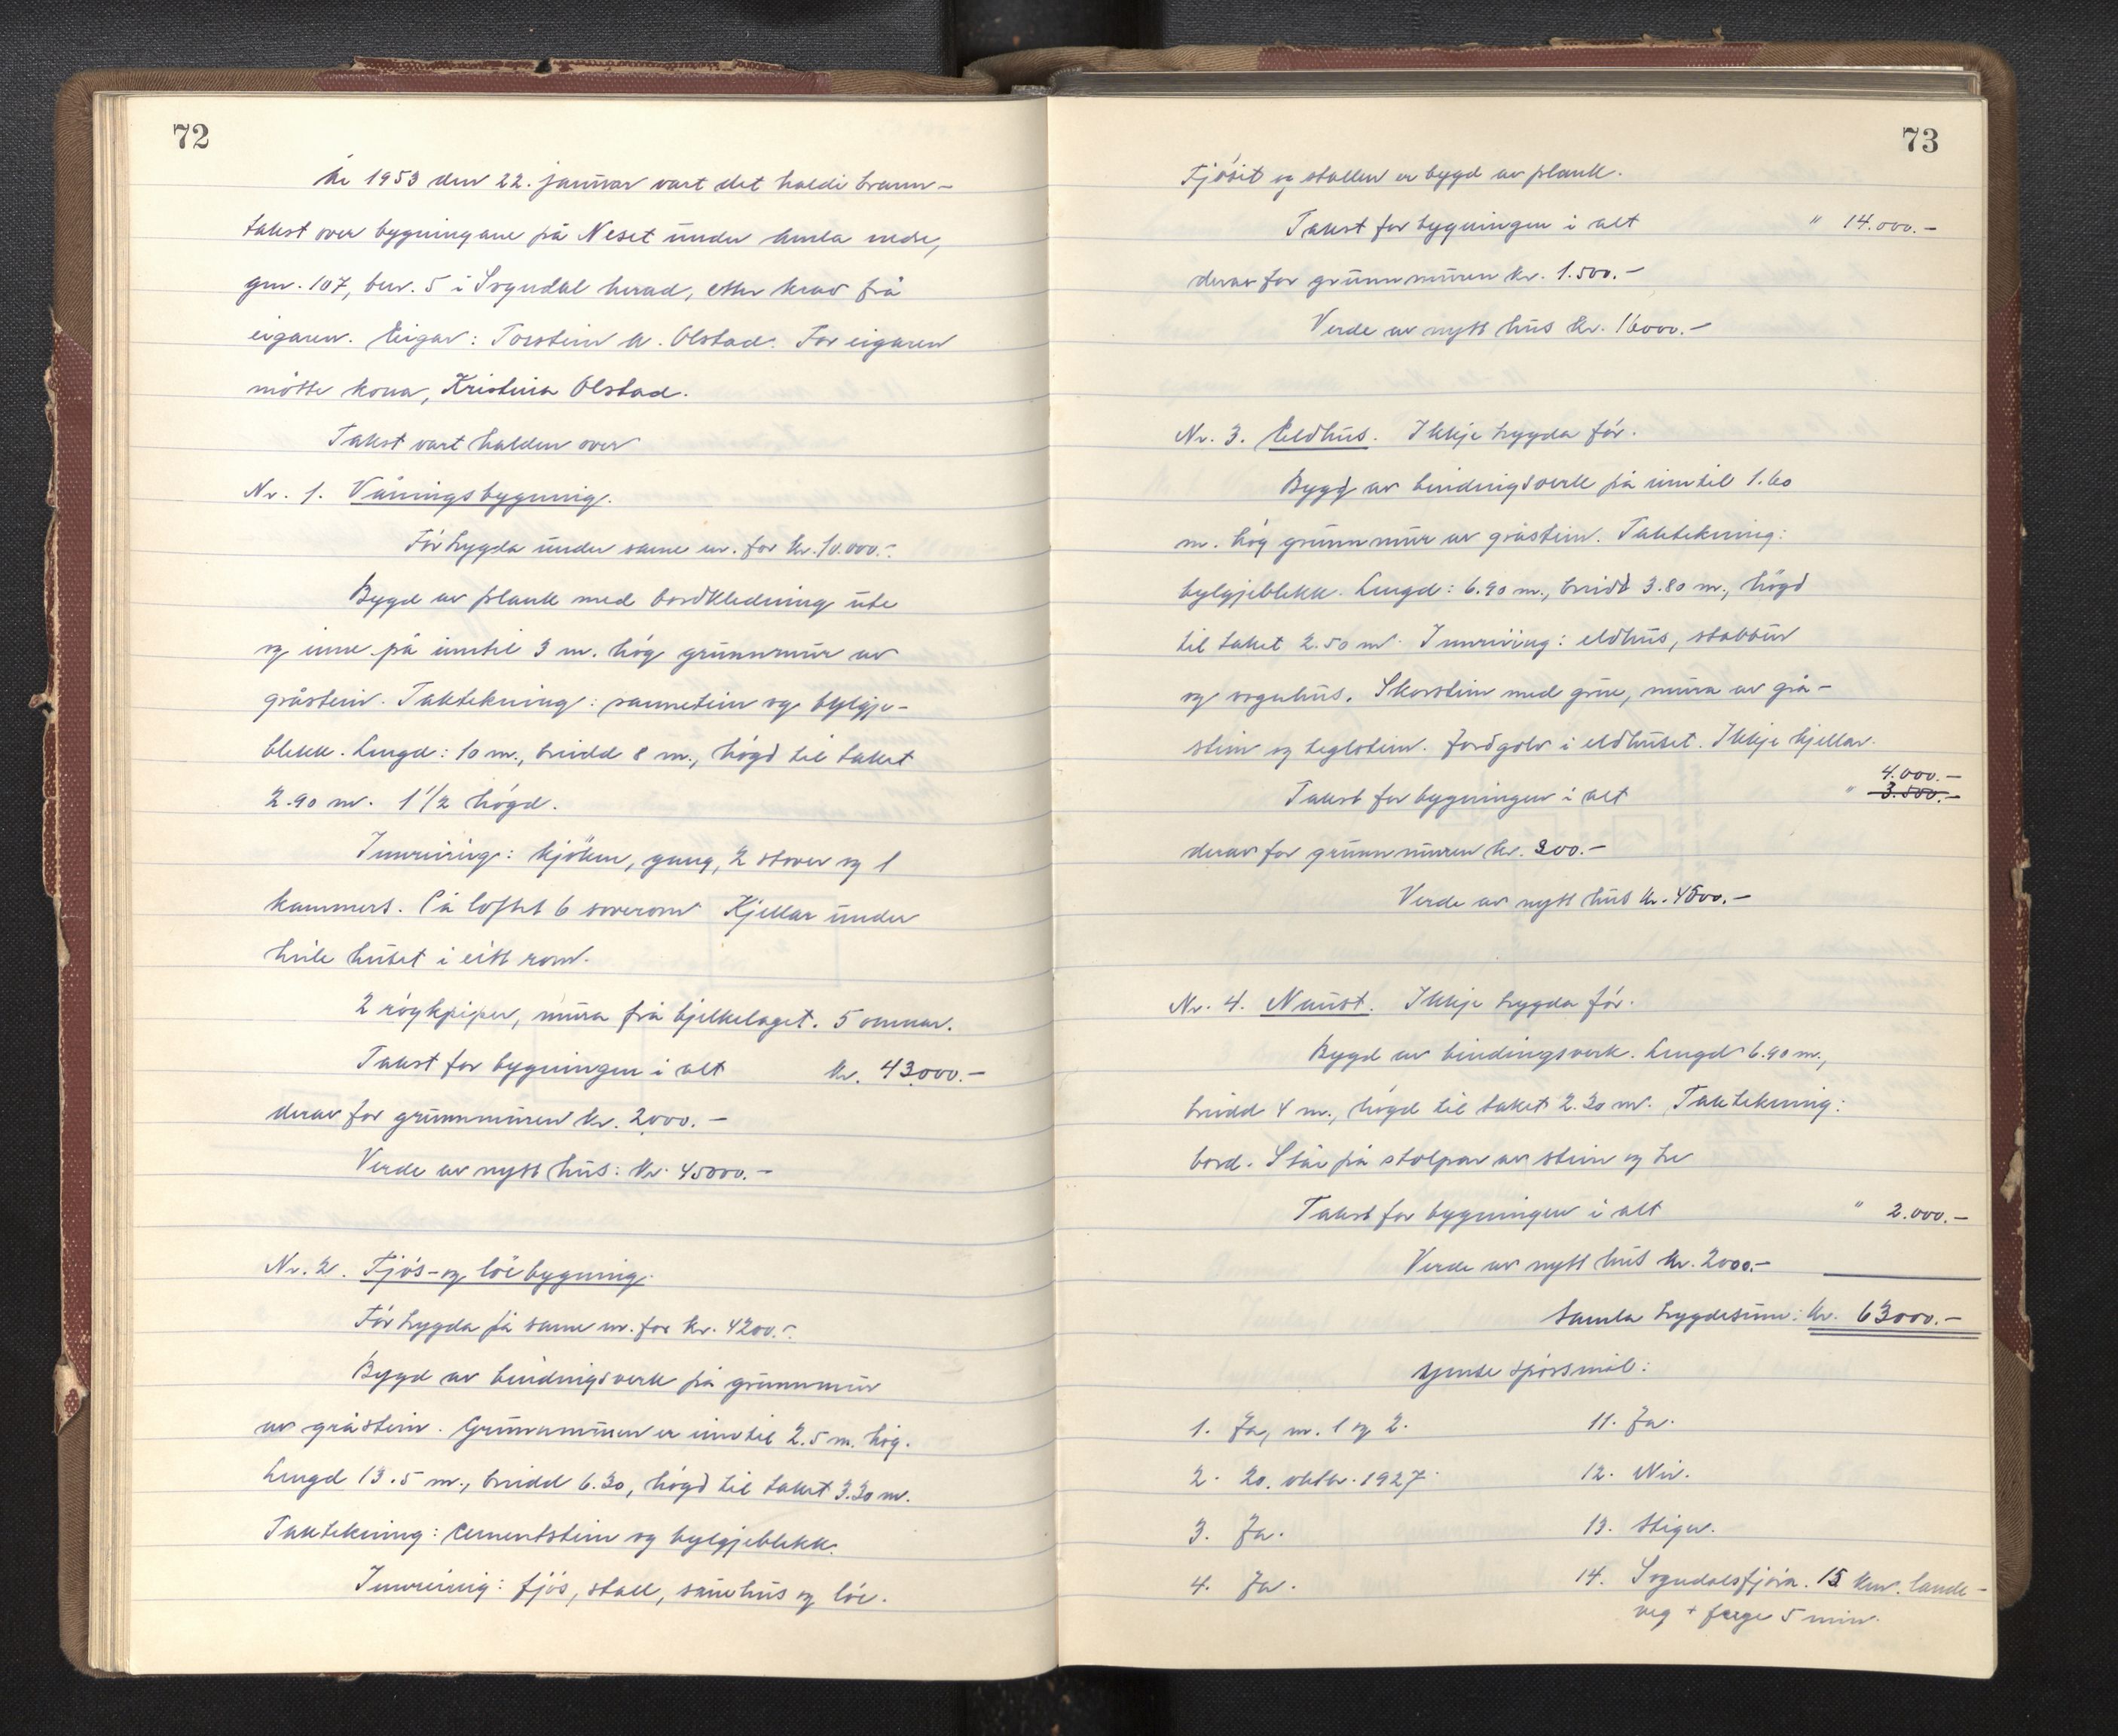 72
År 1953 den 22. januar vart det halde brann-
takst over bygningane på Neset under Amla nedre,
gnr. 107, bnr. 5 i Sogndal herad, etter krav frå
eigaren. Eigar: Torstein A. Olstad. For eigaren
møtte kona, Kristina Olstad.
Takst vart halden over
Nr. 1. Våningsbygning.
Før trygda under same nr. for kr. 10.000.-.
Bygd av plank med bordkledning ute
og inne på inntil 3 m. høg grunnmur av
gråstein. Taktekning: cementstein og bylgje-
blekk. Lengd: 10 m., breidd 8 m., høgd til taket
2.90 m. 1 1/2 høgd.
Innreiing: kjøken, gang, 2 stover og 1
kammers. På loftet 6 soverom. Kjellar under
heile huset i eitt rom.
2 røykpiper, mura frå bjelkelaget. 5 omnar.
Takst for bygningen i alt kr. 43.000.-
derav for grunnmuren kr. 2000.-
Verde av nytt hus: kr. 45000.-
Nr. 2. Fjøs- og løebygning.
Før trygda på same nr. for kr. 4200.-.
Bygd av bindingsverk på grunnmur
av gråstein. Grunnmuren er inntil 2.5 m. høg.
Lengd 13.5 m., breidd 6.30, høgd til taket 3.30 m.
Taktekning: cementstein og bylgjeblekk.
Innreiing: fjøs, stall, sauehus og løe.
73
Fjøset og stallen er bygd av plank.
Takst for bygningen i alt " 14.000.-
derav for grunnmuren kr. 1.500.-
Verde av nytt hus kr. 16000.-
Nr. 3. Eldhus. Ikkje trygda før.
Bygd av bindingsverk på inntil 1.60
m. høg grunnmur av gråstein. Taktekning:
bylgjeblekk. Lengd: 6.90 m., breidd 3.80 m., høgd
til taket 2.50 m. Innreiing: eldhus, stabbur
og vognhus. Skorstein med grue, mura av grå-
stein og teglstein. Jordgolv i eldhuset. Ikkje kjellar.
4.000.-
Takst for bygningen i alt " 3.500.-
derav for grunnmuren kr. 300.-
Verde av nytt hus kr. 4500.-
Nr. 4. Naust. Ikkje trygda før.
Bygd av bindingsverk. Lengd 6.90 m.,
breidd 4 m., høgd til taket 2.30 m. Taktekning:
bord. Står på stolpar av stein og tre
Takst for bygningen i alt " 2.000.-
Verde av nytt hus kr. 2000.-
Samla trygdesum: kr. 63000.-
Ymse spørsmål:
1. Ja, nr. 1 og 2. 11. Ja.
2. 20. oktbr. 1927. 12. Nei.
3. Ja. 13. Stigar.
4. Ja. 14. Sogndalsfjøra. 15 km. lande-
veg + ferge 5 min.